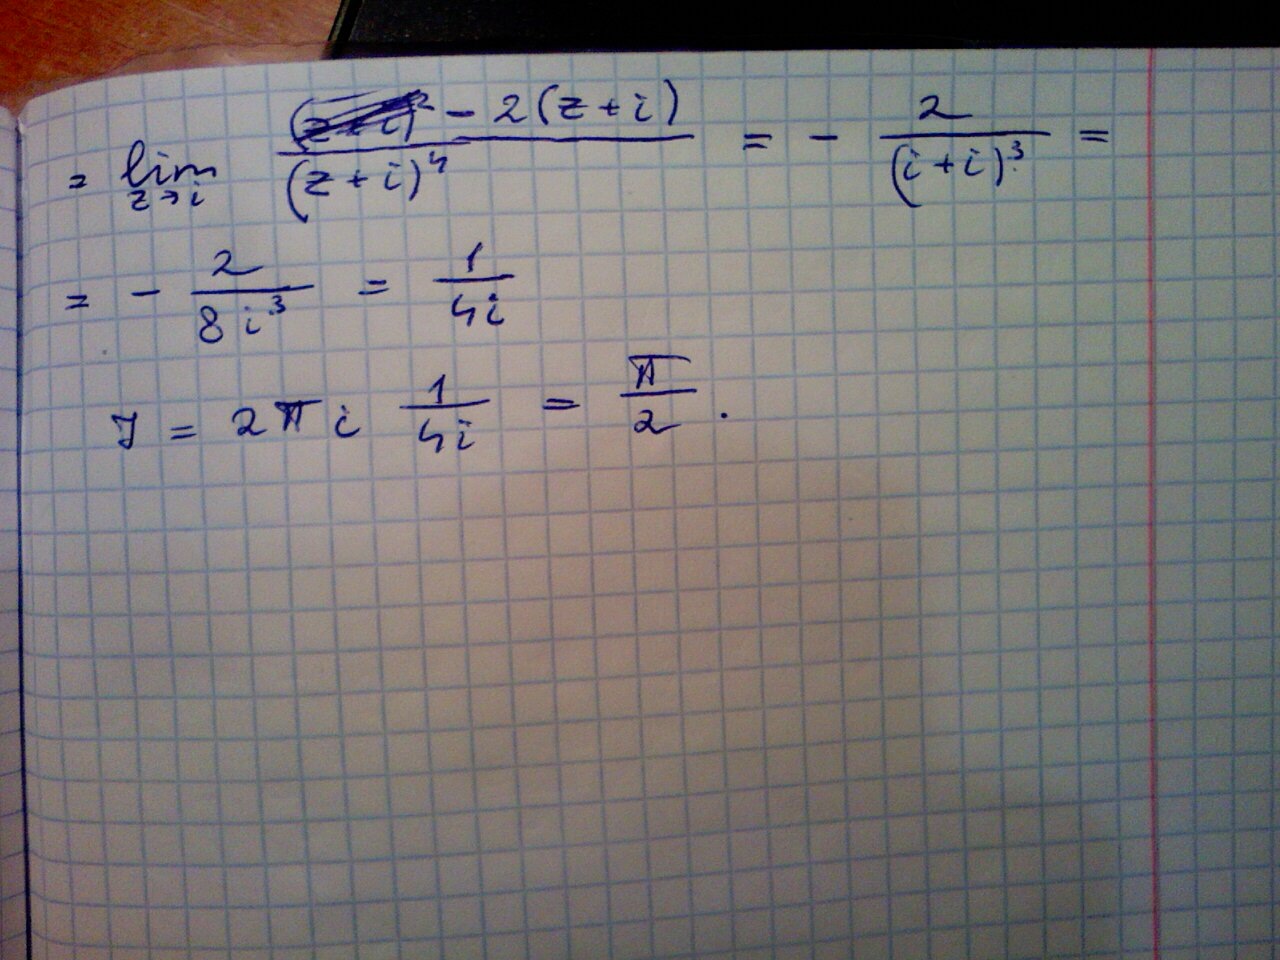 = lim z→i (-2(z+i))/(z+i)⁴ = - 2/(i+i)³ =
= - 2/(8i³) = 1/(4i)
J = 2πi 1/(4i) = π/2.